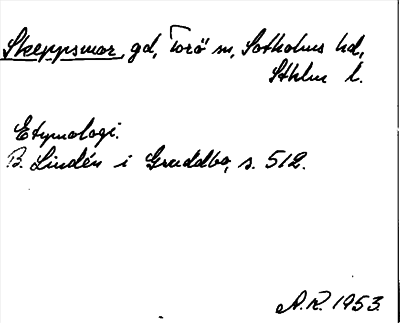 Skeppsmor, gd, Torö sn, Sotholms hd,
Sthlm l.
Etymologi.
B. Lindén i Gruddbo, s. 512.
A.R. 1953.